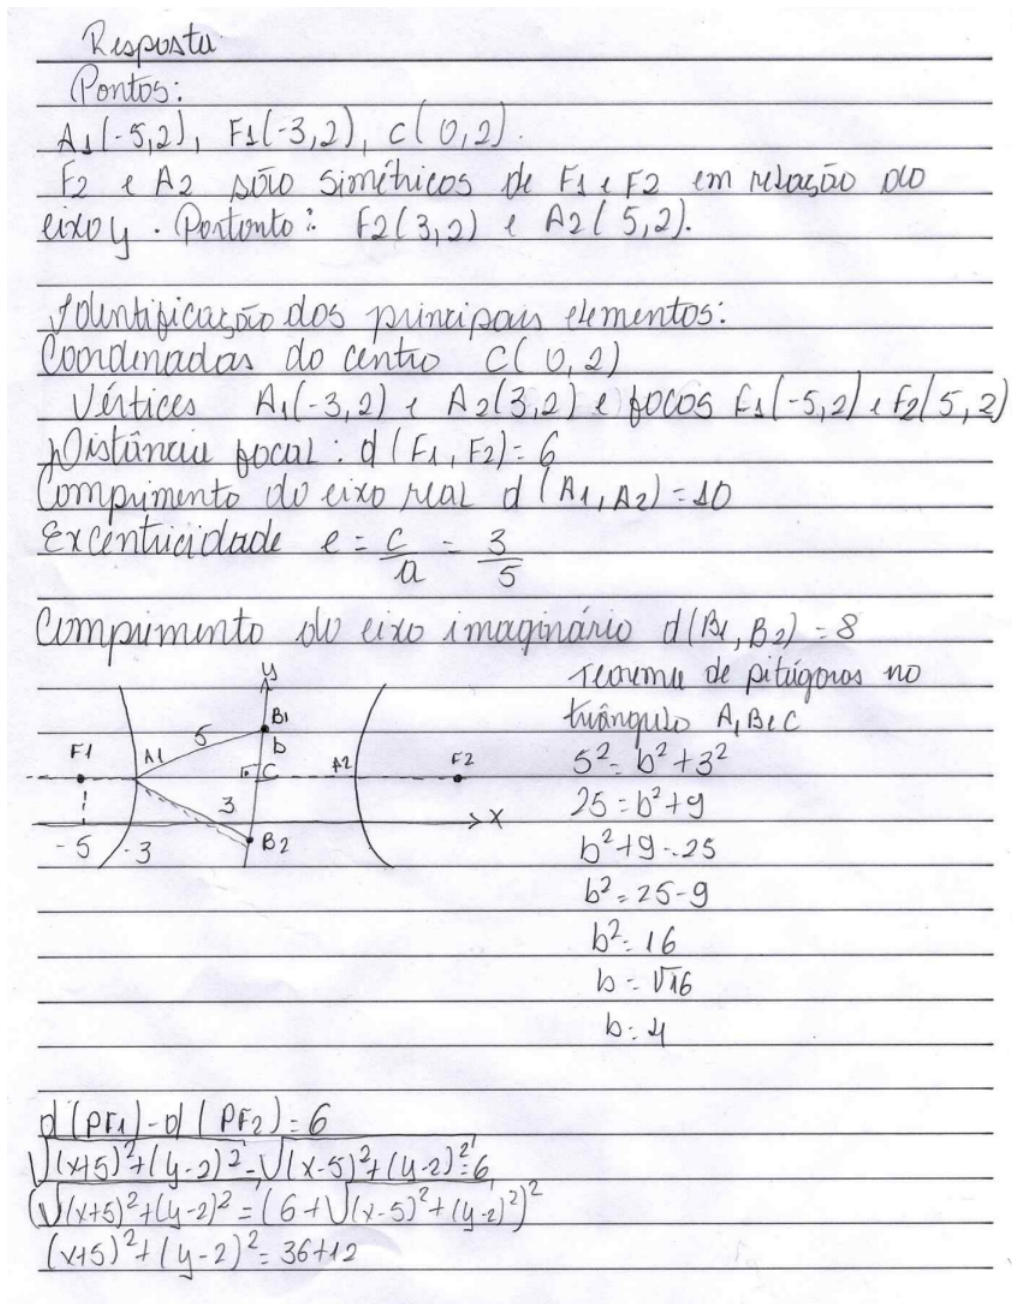 Resposta
Pontos:
A1(-5,2), F1(-3,2), C(0,2).
F2 e A2 são simétricos de F1 e F2 em relação ao
eixo y. Portanto: F2(3,2) e A2(5,2).
Identificação dos principais elementos:
Coordenadas do centro C(0,2)
Vértices A1(-3,2) e A2(3,2) e focos F1(-5,2) e F2(5,2)
Distância focal: d(F1,F2)=6
Comprimento do eixo real d(A1,A2)=10
Excentricidade e = c/a = 3/5
Comprimento do eixo imaginário d(B1,B2)=8
Teorema de pitágoras no
triângulo A1B1C
5²=b²+3²
25=b²+9
b²+9=25
b²=25-9
b²=16
b=√16
b=4
y
B1
5
b
F1
A1
C
A2
F2
3
x
-5
-3
B2
d(PF1)-d(PF2)=6
√(x+5)²+(y-2)²-√(x-5)²+(y-2)²=6
(√(x+5)²+(y-2)²=(6+√(x-5)²+(y-2)²)²
(x+5)²+(y-2)²=36+12